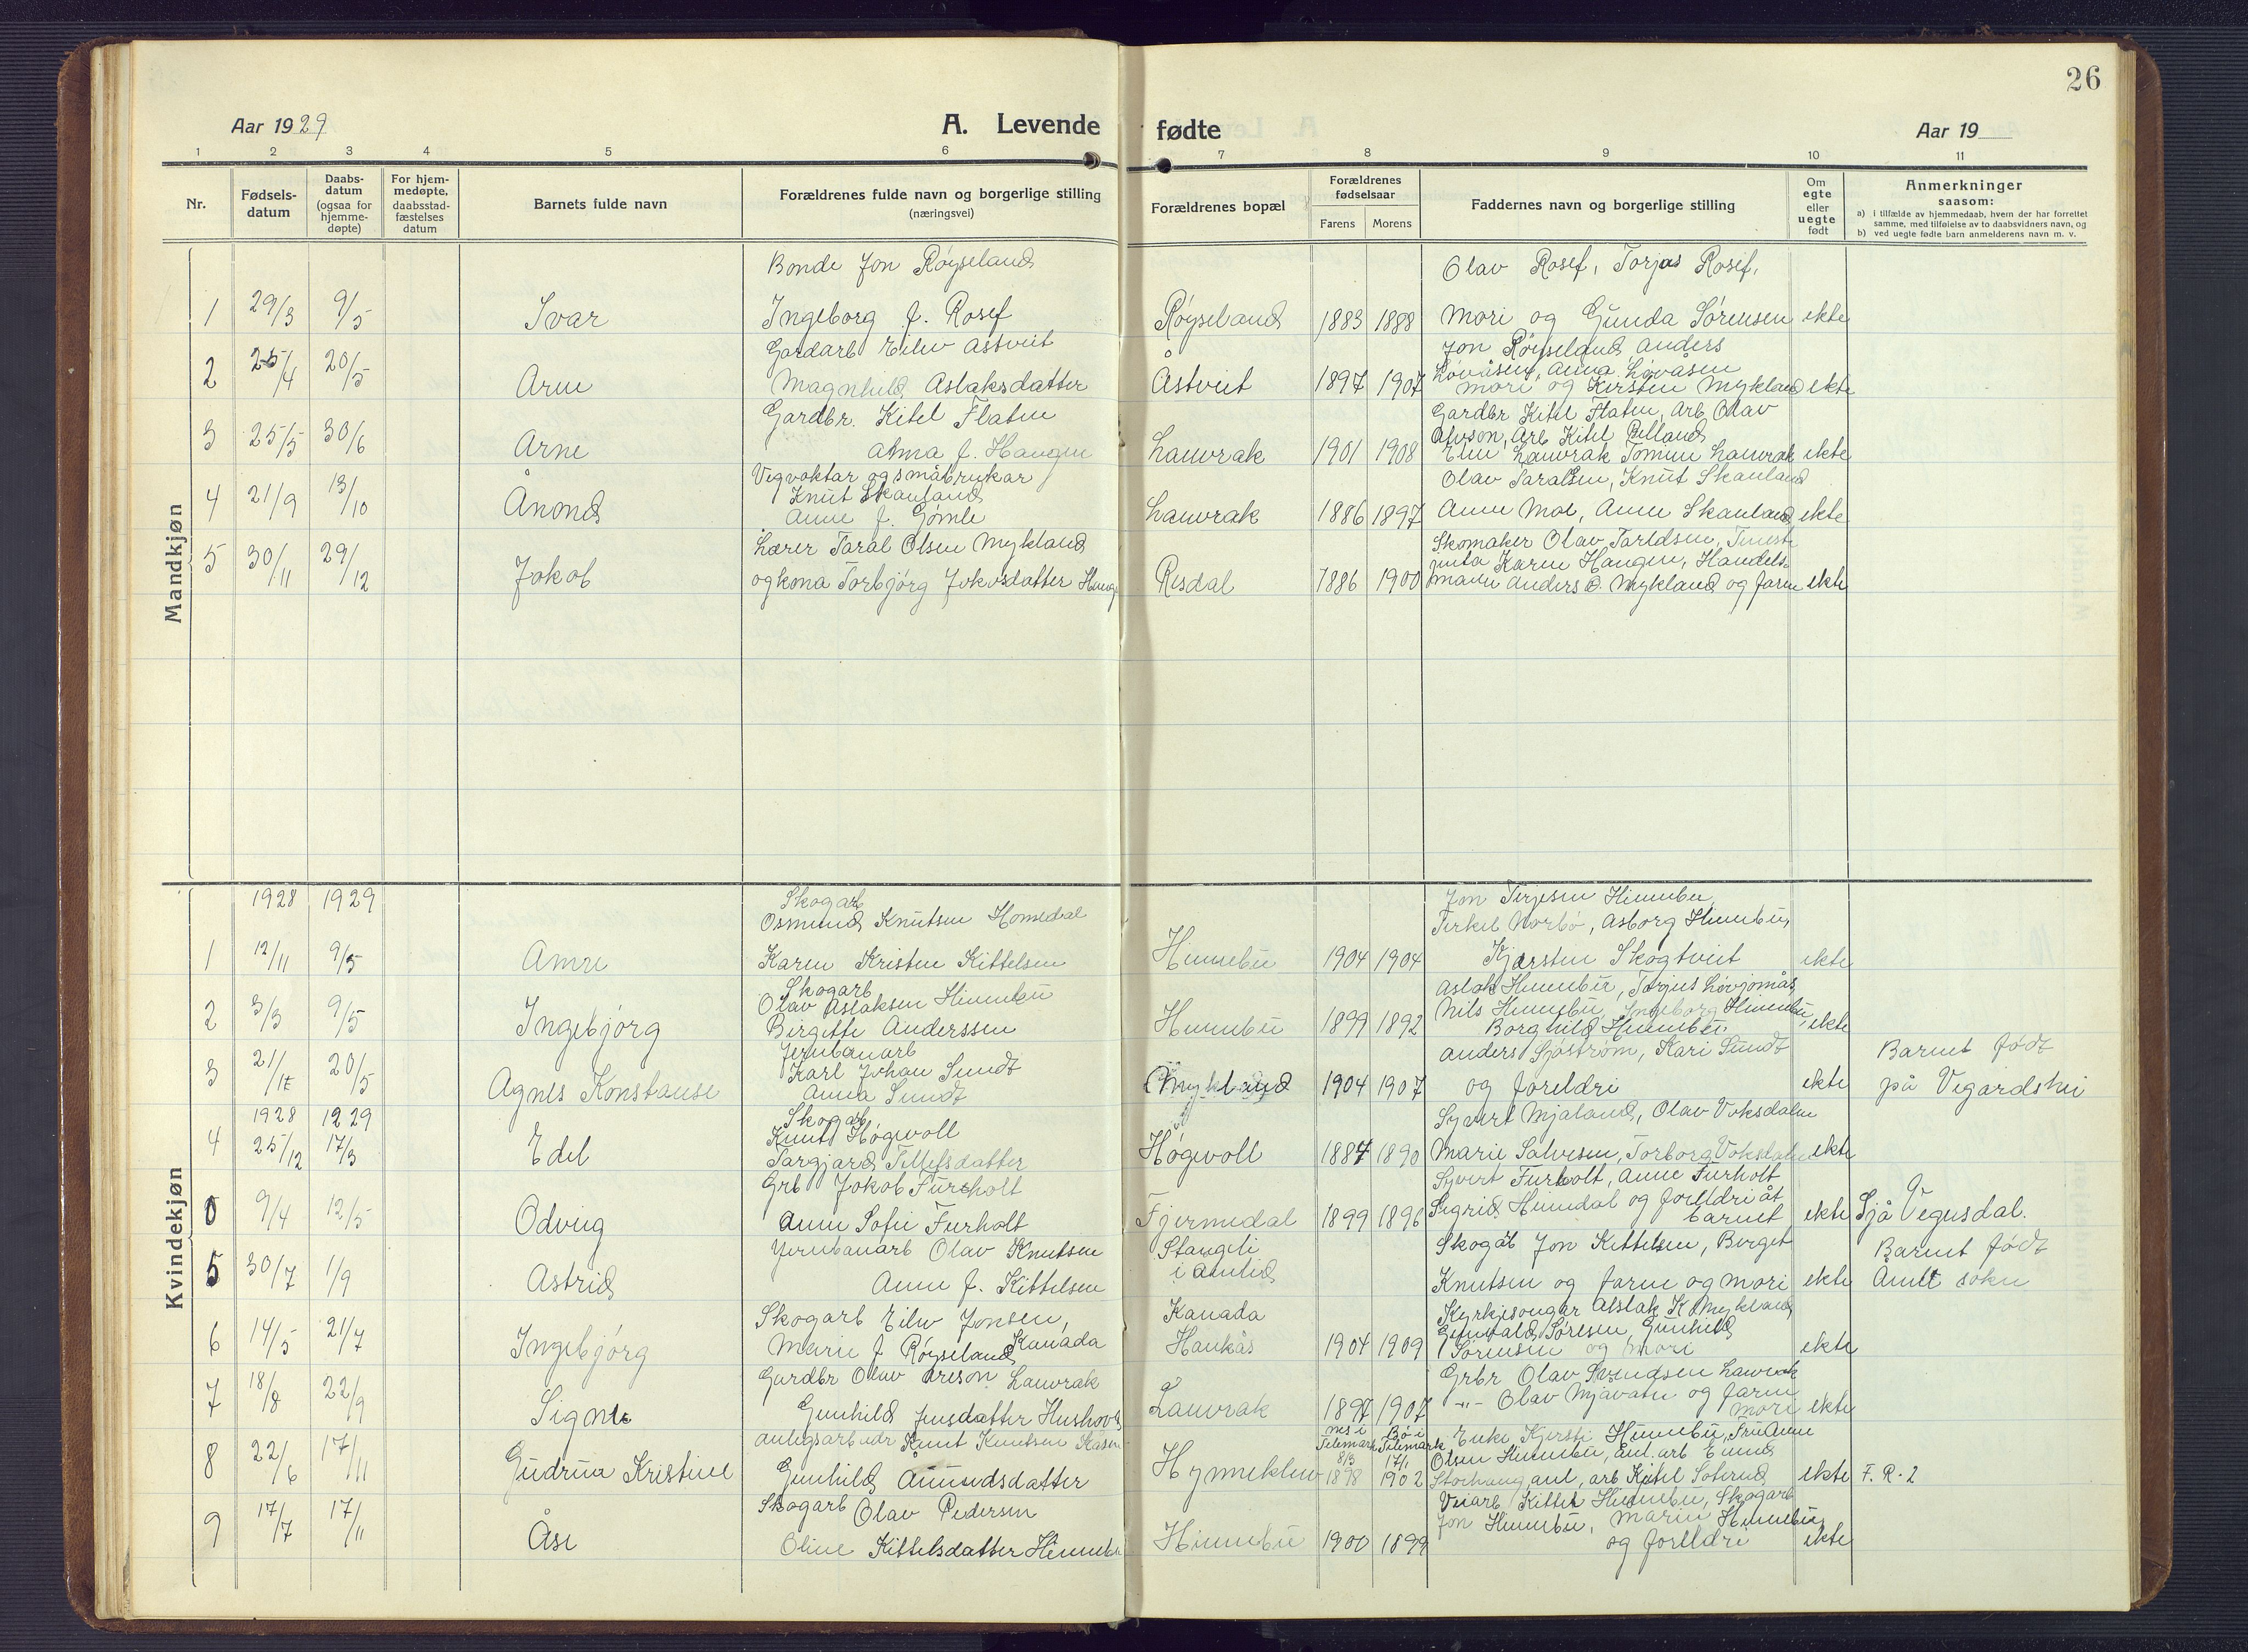 26
Aar 1929
A. Levende fødte
Aar 19
1 2 3 4 5 6 7 8 9 10 11
Nr.
Fødsels-
datum
Daabs-
datum
(ogsaa for
hjemme-
døpte)
For hjem-
medøpte,
daabsstad-
fæstelses
datum
Barnets fulde navn
Forældrenes fulde navn og borgerlige stilling
(næringsvei)
Forældrenes bopæl
Forældrenes
fødselsaar
Farens Morens
Faddernes navn og borgerlige stilling
Om
egte
eller
uegte
født
Anmerkninger
saasom:
a) i tilfælde av hjemmedaab, hvem der har forrettet
samme, med tilføielse av to daabsvidners navn, og
b) ved uegte fødte barn anmelderens navn m. v.
Mandkjøn
Bonde Jon Røyseland Olav Rosef, Torjus Rosef,
1 29/3 9/5 Ivar Ingeborg J. Rosef Røyseland 1883 1888 Mori og Gunda Sørensen ekte
Gardarb Eilev Åstveit Jon Røyseland, Anders
Løvåsen, Anna Løvåsen
2 25/4 20/5 Arne Magnhild Aslaksdatter Åstveit 1897 1907 mori og Kirsten Mykland ekte
Gardbr. Kitel Flaten Gardbr Kitel Flaten, Arb. Olav
Olvson, Arb Kitel
3 25/5 30/6 Arne Anna J. Haugen Lauvrak 1901 1908 Elen Lauvrak Tomine Lauvrak ekte
Vegvoktar og småbrukar Olav Taraldsen, Knut Skauland
Knut Skauland
4 21/9 13/10 Ånond Anne J. Gømle Lauvrak 1886 1897 Anne Moe, Anne Skauland ekte
Lærer Taral Olsen Mykland Skomaker Olav Tarldsen, Tenest-
jenta Karen Haugen, Handels-
5 30/11 29/12 Jakob og kona Torbjørg Jakobsdatter Risdal 1886 1900 mann Anders O. Mykland og faren ekte
Kvindekjøn
1928 1929 Skogarb Jon Terjesen Hinnebu
Osmund Knutsen Homdal Terkel Norbø, Asborg Hinnebu,
1 12/11 9/5 Anne Karen Kristine Kittelsen Hinnebu 1904 1904 Kjersten Skogtveit ekte
Skogarb Aslak Hinnebu, Torjus Løvjomås,
Olav Aslaksen Hinnebu Nils Hinnebu, Ingeborg Hinnebu,
2 3/3 9/5 Ingebjørg Birgitte Anderssen Hinnebu 1899 1892 Borghild Hinnebu. ekte
Jernbanarb Anders Sjøstrøm, Kari Sundt Barnet født
Karl Johan Sundt
3 21/ 20/5 Agnes Konstanse Anna Sundt Mykland 1904 1907 og foreldri ekte på Vegårdshei
1928 1929 Skogarb Syvert Mjaland, Olav Voksdalen
Knut Høgevoll
4 25/12 17/3 Edel Targjerd Tellefsdatter Høgevoll 1884 1890 Marie Salvesen, Torborg Voksdalen ekte
Grb Jokob Furholt Syvert Furholt, Anne Furholt
Sigrid Heimdal og foreldri åt
0 9/4 12/5 Odveig Anne Sofie Furholt Fjermedal 1899 1896 barnet ekte Sjå Vegusdal.
Jernbanarb Olav Knutsen Stangeli Skogarb Jon Kittelsen, Birget Barnet født
5 30/7 1/9 Astrid Anne J. Kittelsen i Åmlid Knutsen og faren og mori ekte Åmli sokn
Skogarb Eilev Jonsen, Kanada Kyrkjesongar Aslak K Mykland
Gunvald Sørensen, Gunhild
6 14/5 21/7 Ingebjørg Marie J Røyseland Kanada Haukås 1904 1909 Sørensen og mori ekte
Gardbr Olav Lauvrak Grbr Olav Svendsen Lauvrak
-"- Olav Mjåvatn og faren
7 18/8 22/9 Signe Gunhild Jensdatter Hushovd Lauvrak 1897 1907 mori ekte
Anlegsarbeidr Knut Knutsen Nes i Telemark Bø i Telemark Enke Kjersti Hinnebu, Fru Anne
8/3 17/1 Olsen Hinnebu, Anl. arb
8 22/6 17/11 Gudrun Kristine Gunhild Åmundsdatter Hynneklev 1898 1902 Storhaug anl. arb Kittel Soterud ekte F. R. 2
Skogarb Olav Pedersen Veiarb Kittel Hinnebu, Skogarb
Jon Hinnebu, Marie Hinnebu
9 17/7 17/11 Åse Oline Kittelsdatter Hinnebu Hinnebu 1900 1899 og foreldri ekte